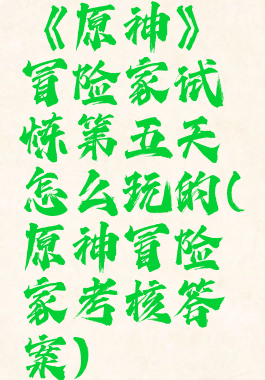 《原神》
冒险家试
炼第五天
怎么玩的(
原神冒险
家考核答
案)